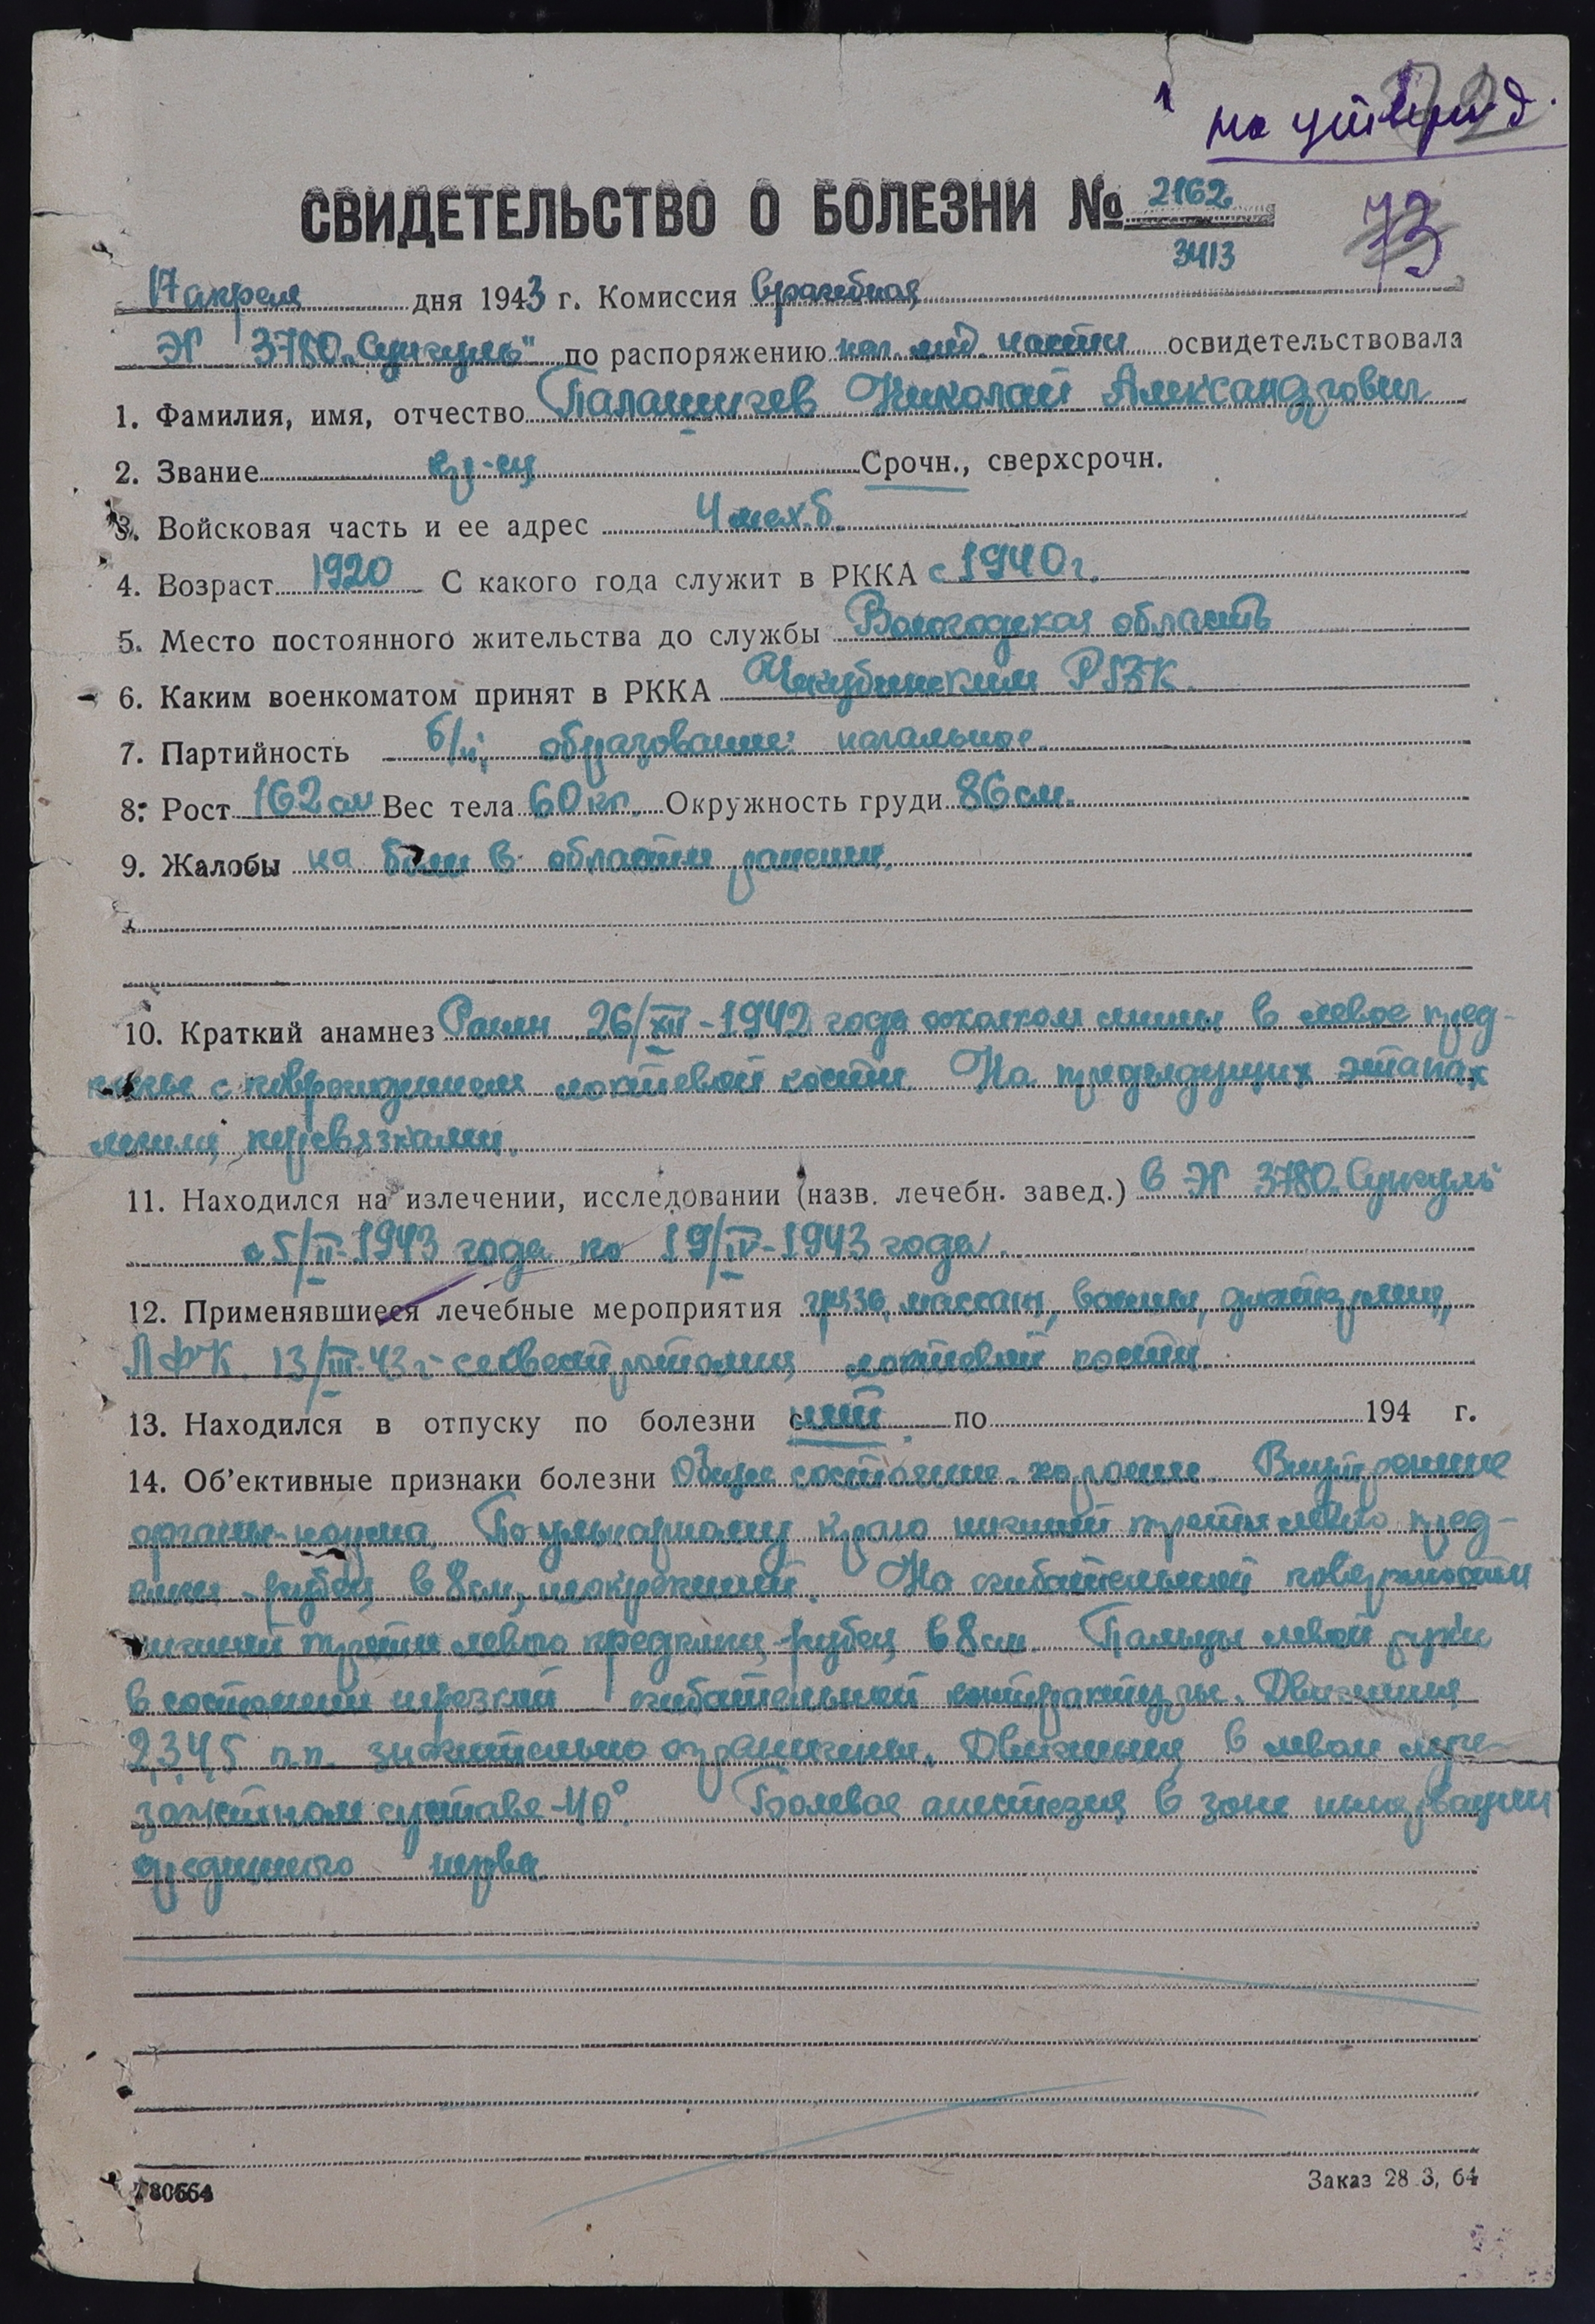 на утвержд.
СВИДЕТЕЛЬСТВО О БОЛЕЗНИ № 2162
3413
73
17 апреля дня 1943 г. Комиссия врачебная
ЭГ 3780 „Сунгуль" по распоряжению нач. мед. части освидетельствовала
1. Фамилия, имя, отчество Палашичев Николай Александрович
2. Звание кр-ец Срочн., сверхсрочн.
3. Войсковая часть и ее адрес 4 мех. б.
4. Возраст 1920 С какого года служит в РККА с 1940 г.
5. Место постоянного жительства до службы Вологодская область
6. Каким военкоматом принят в РККА РВК
7. Партийность б/п; образование: начальное
8. Рост 162 см Вес тела 60 кг. Окружность груди 86 см.
9. Жалобы на боли в области ранения.
10. Краткий анамнез Ранен 26/XII-1942 года осколком мины в левое пред-
плечье с повреждением локтевой кости. На предыдущих этапах
лечили перевязками.
11. Находился на излечении, исследовании (назв. лечебн. завед.) в ЭГ 3780 „Сунгуль"
с 5/II-1943 года по 19/IV-1943 года.
12. Применявшиеся лечебные мероприятия грязь, массаж, ванны, диатермия,
ЛФК. 13/III-43 г. секвестротомия локтевой кости.
13. Находился в отпуску по болезни с нет по 194 г.
14. Об'ективные признаки болезни Общее состояние хорошее. Внутренние
органы-норма. По ульнарному краю нижней трети левого пред-
плечья рубец в 8 см, неокрепший. На сгибательной поверхности
нижней трети левого предплечья рубец в 8 см. Пальцы левой руки
в состоянии нерезкой сгибательной контрактуры. Движения
2,3,4,5 п.п. значительно ограничены. Движения в левом луче-
запястном суставе-40° Болевая анестезия в зоне иннервации
срединного нерва
Т80664
Заказ 28 3, 64